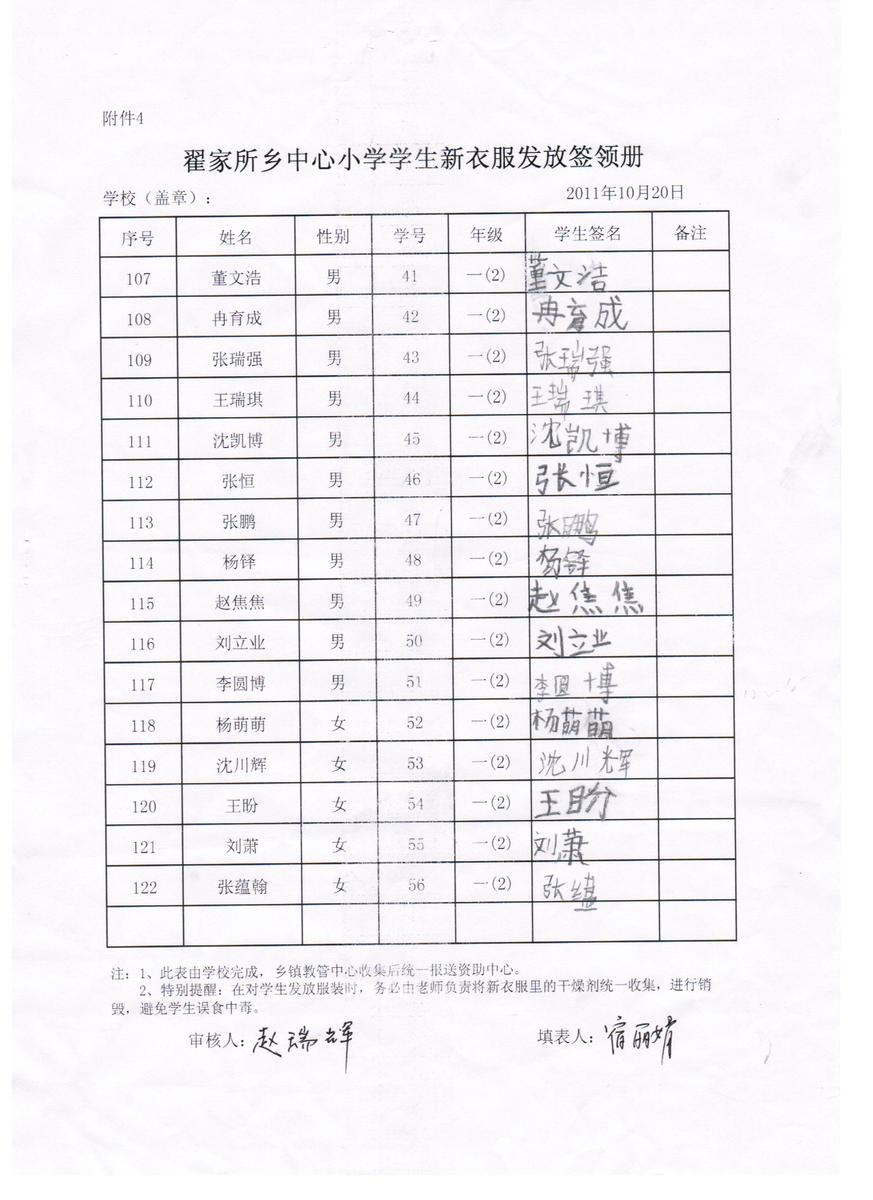 附件4
翟家所乡中心小学学生新衣服发放签领册
学校（盖章）： 2011年10月20日
序号 姓名 性别 学号 年级 学生签名 备注
107 董文浩 男 41 一(2) 董文浩
108 冉育成 男 42 一(2) 冉育成
109 张瑞强 男 43 一(2) 张瑞强
110 王瑞琪 男 44 一(2) 王瑞琪
111 沈凯博 男 45 一(2) 沈凯博
112 张恒 男 46 一(2) 张恒
113 张鹏 男 47 一(2) 张鹏
114 杨铎 男 48 一(2) 杨铎
115 赵焦焦 男 49 一(2) 赵焦焦
116 刘立业 男 50 一(2) 刘立业
117 李圆博 男 51 一(2) 李圆博
118 杨萌萌 女 52 一(2) 杨萌萌
119 沈川辉 女 53 一(2) 沈川辉
120 王盼 女 54 一(2) 王盼
121 刘萧 女 55 一(2) 刘萧
122 张蕴翰 女 56 一(2) 张
注：1、此表由学校完成，乡镇教管中心收集后统一报送资助中心。
2、特别提醒：在对学生发放服装时，务必由老师负责将新衣服里的干燥剂统一收集，进行销
毁，避免学生误食中毒。
审核人：赵瑞辉 填表人：宿丽婧